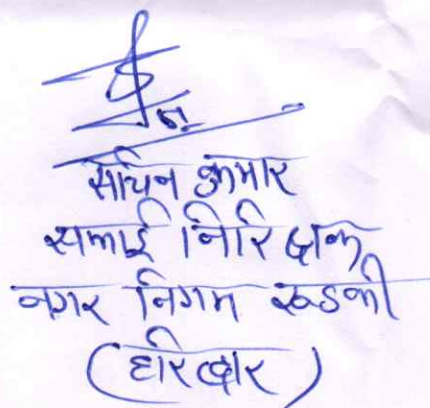 सचिन कुमार
सफाई निरिक्षक
नगर निगम रूड़की
(हरिद्वार)